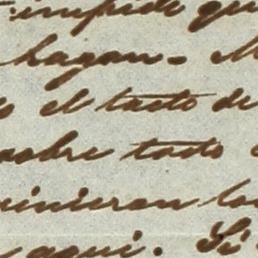 impide que
hagan.
el tacto de
sobre todo
vinieran los
aqui. Si